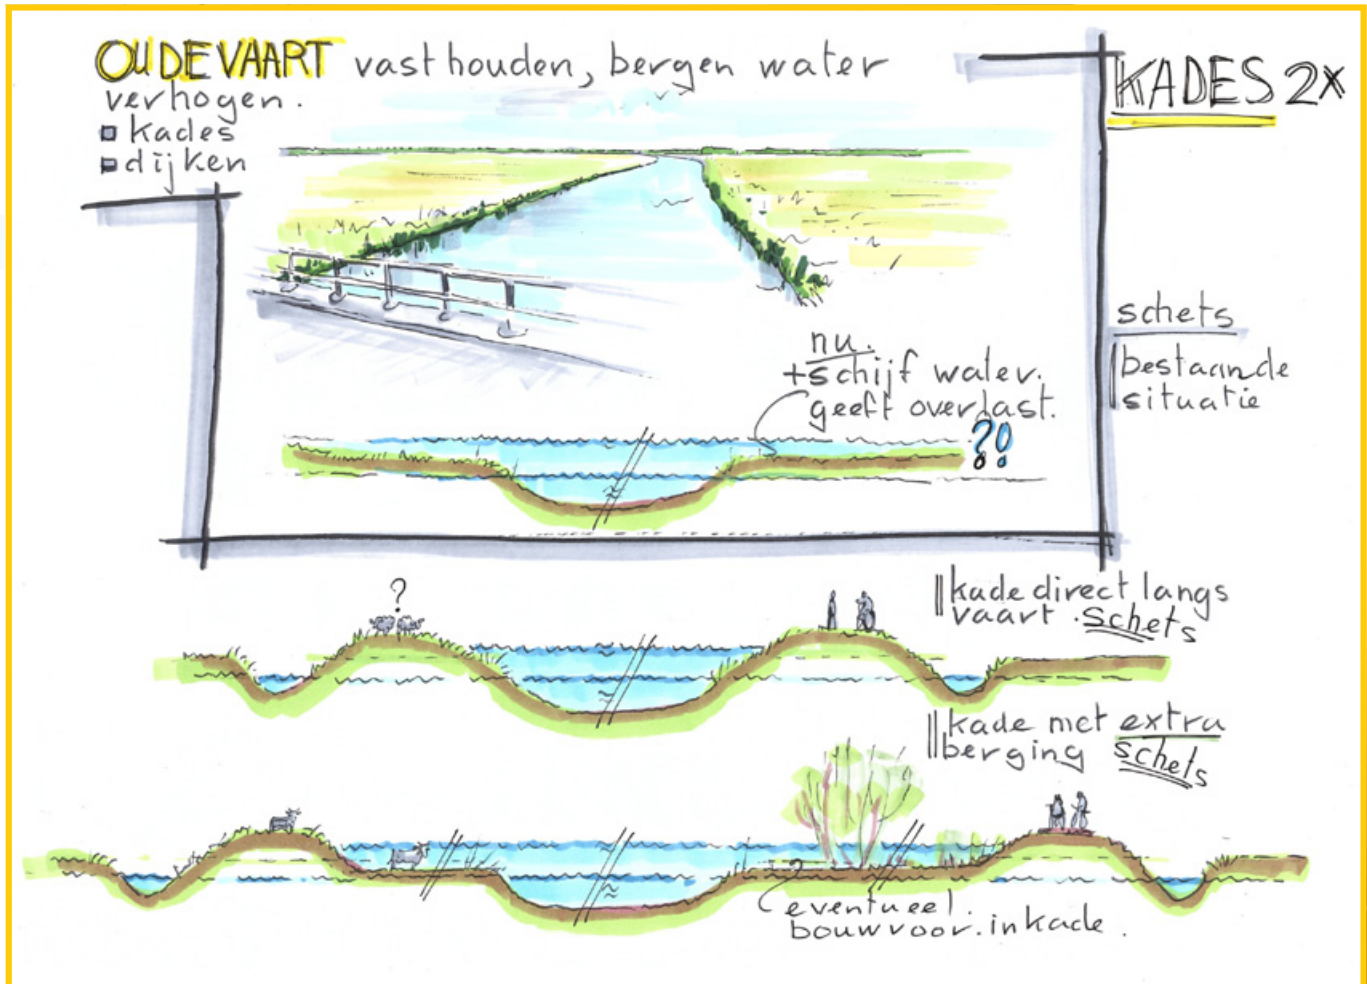 OUDEVAART vasthouden, bergen water
verhogen.
kades
dijken
KADES 2x
schets
bestaande
situatie
nu.
+schijf water.
geeft overlast.
?!
?
kade direct langs
vaart . schets
kade met extra
berging schets
eventueel.
bouwvoor. in kade.